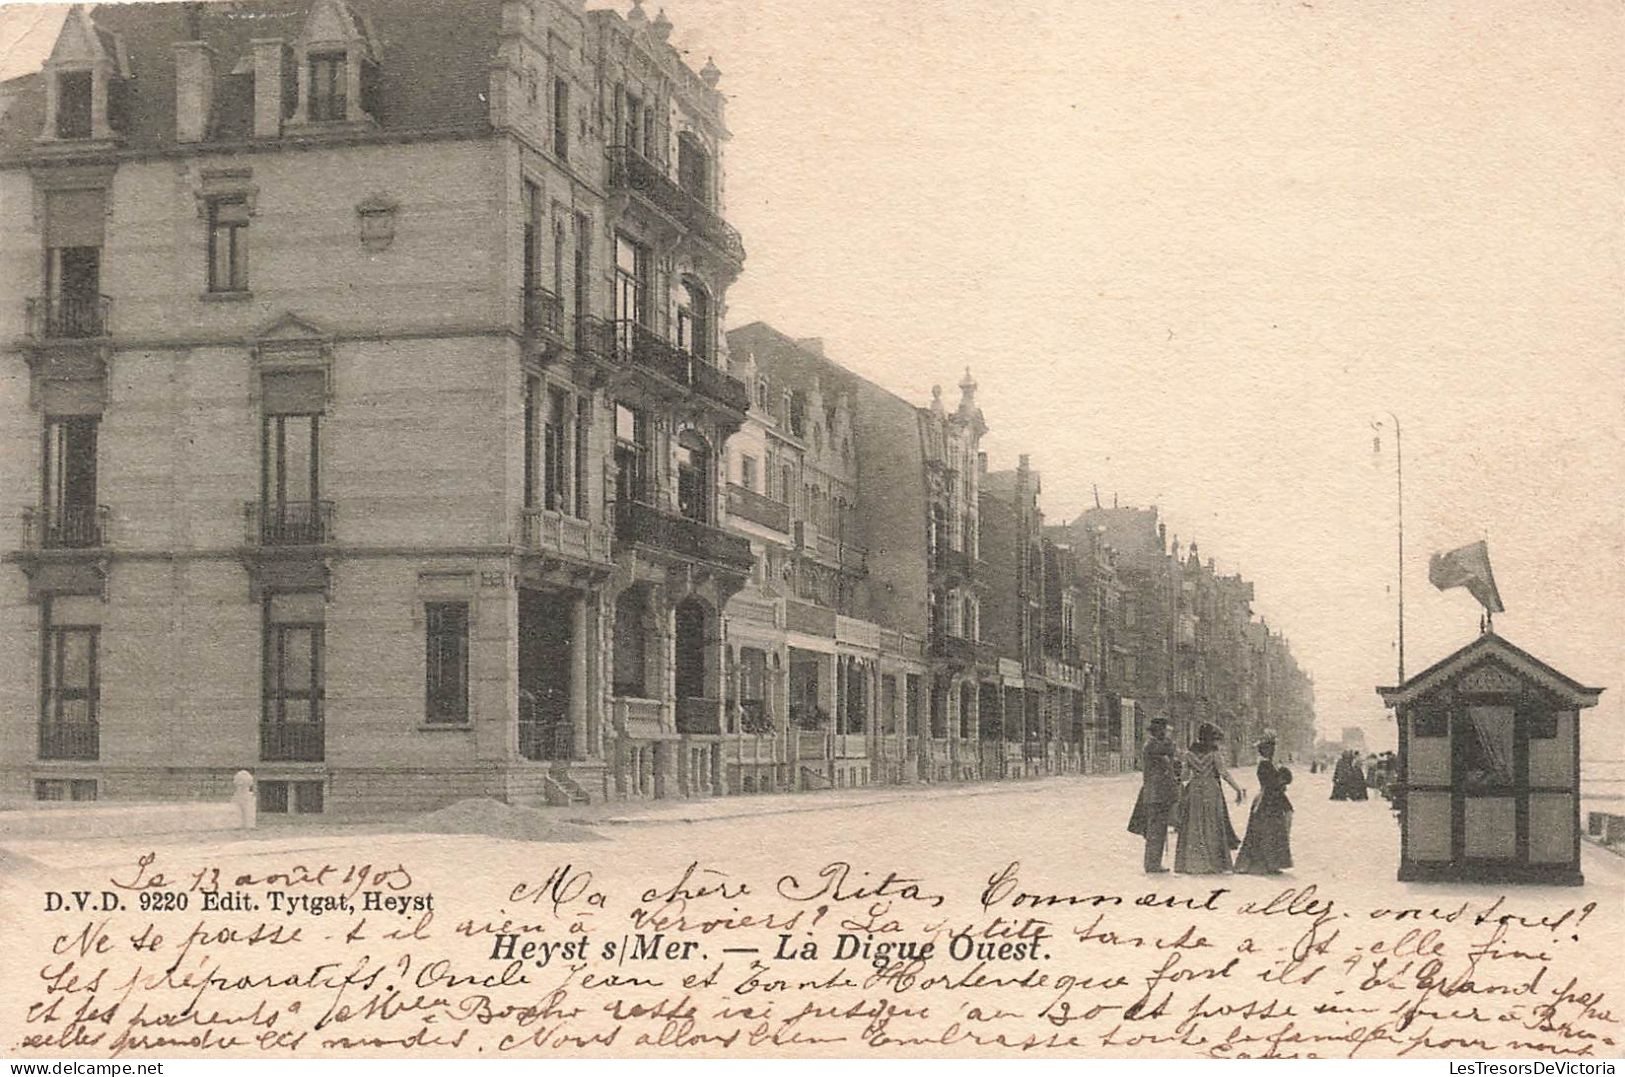 Le 13 août 1903
D.V.D. 9220 Edit. Tytgat, Heyst
Ma chère Rita, Comment allez-vous tous?
Ne se passe-t il rien à Verviers? La petite tante a-t-elle fini
Heyst s/Mer. — La Digue Ouest.
ses préparatifs? Oncle Jean et Tante Hortense que font ils? Et Grand papa
et tes parents? Melle reste ici jusqu'au 20 et passe un jour à Bru-
xelles prendre les modes. Nous allons bien Embrasse toute la famille pour nous
LesTresorsDeVictoria